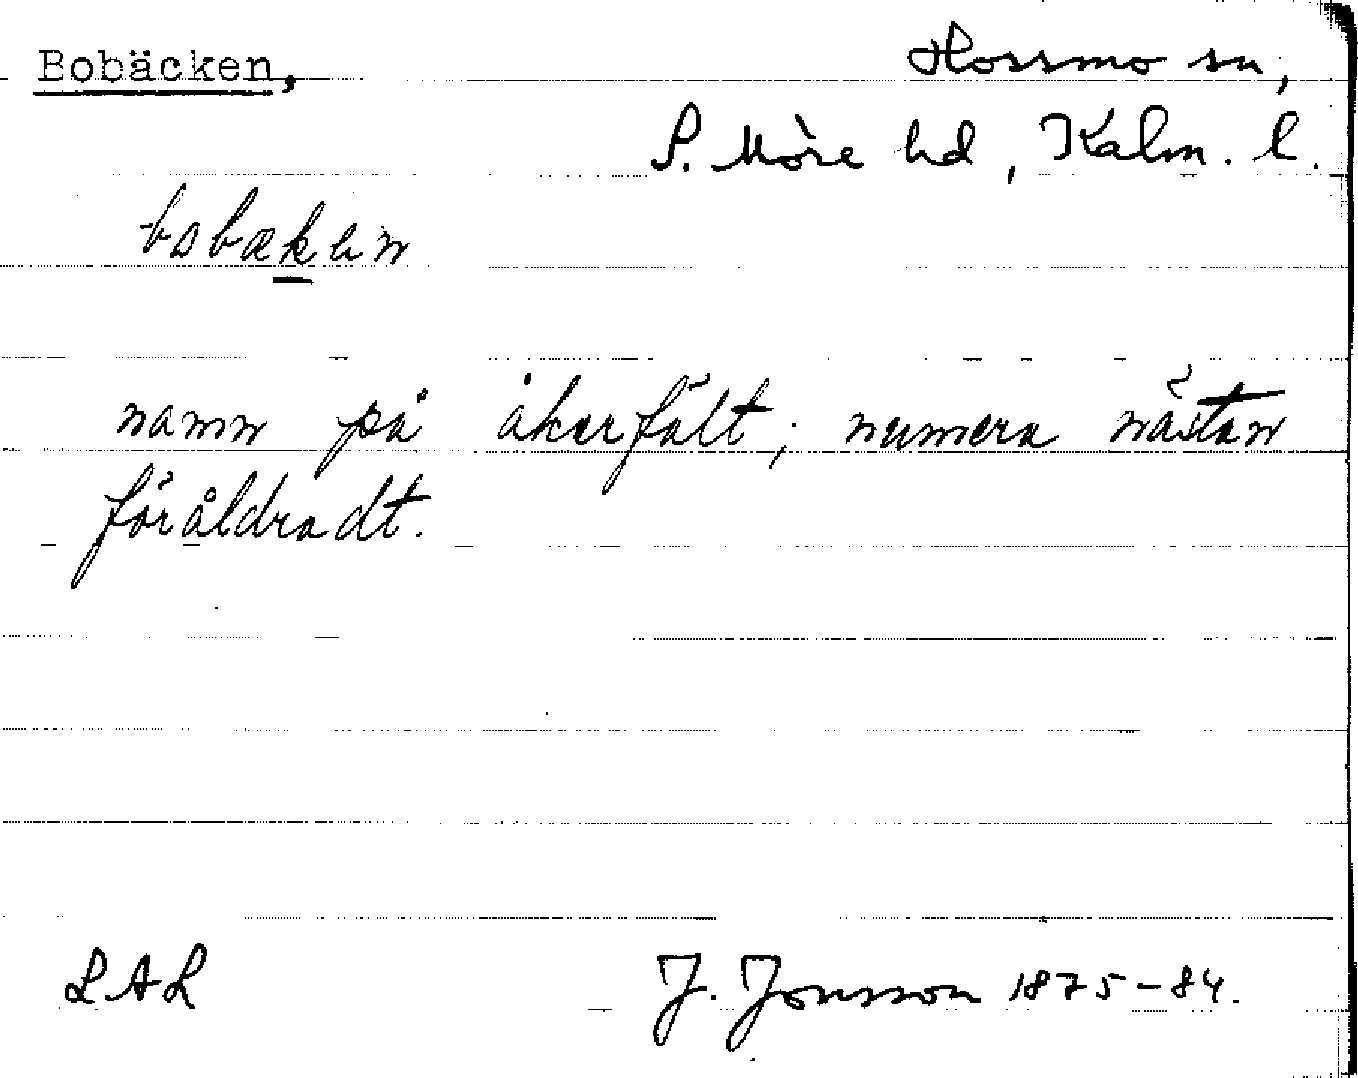 Bobäcken,
Hossmo sn,
S. Möre hd, Kalm. l.
bobæken
namn på åkerfält; numera nästan
föråldradt.
LAL
J. Jonsson 1875-84.